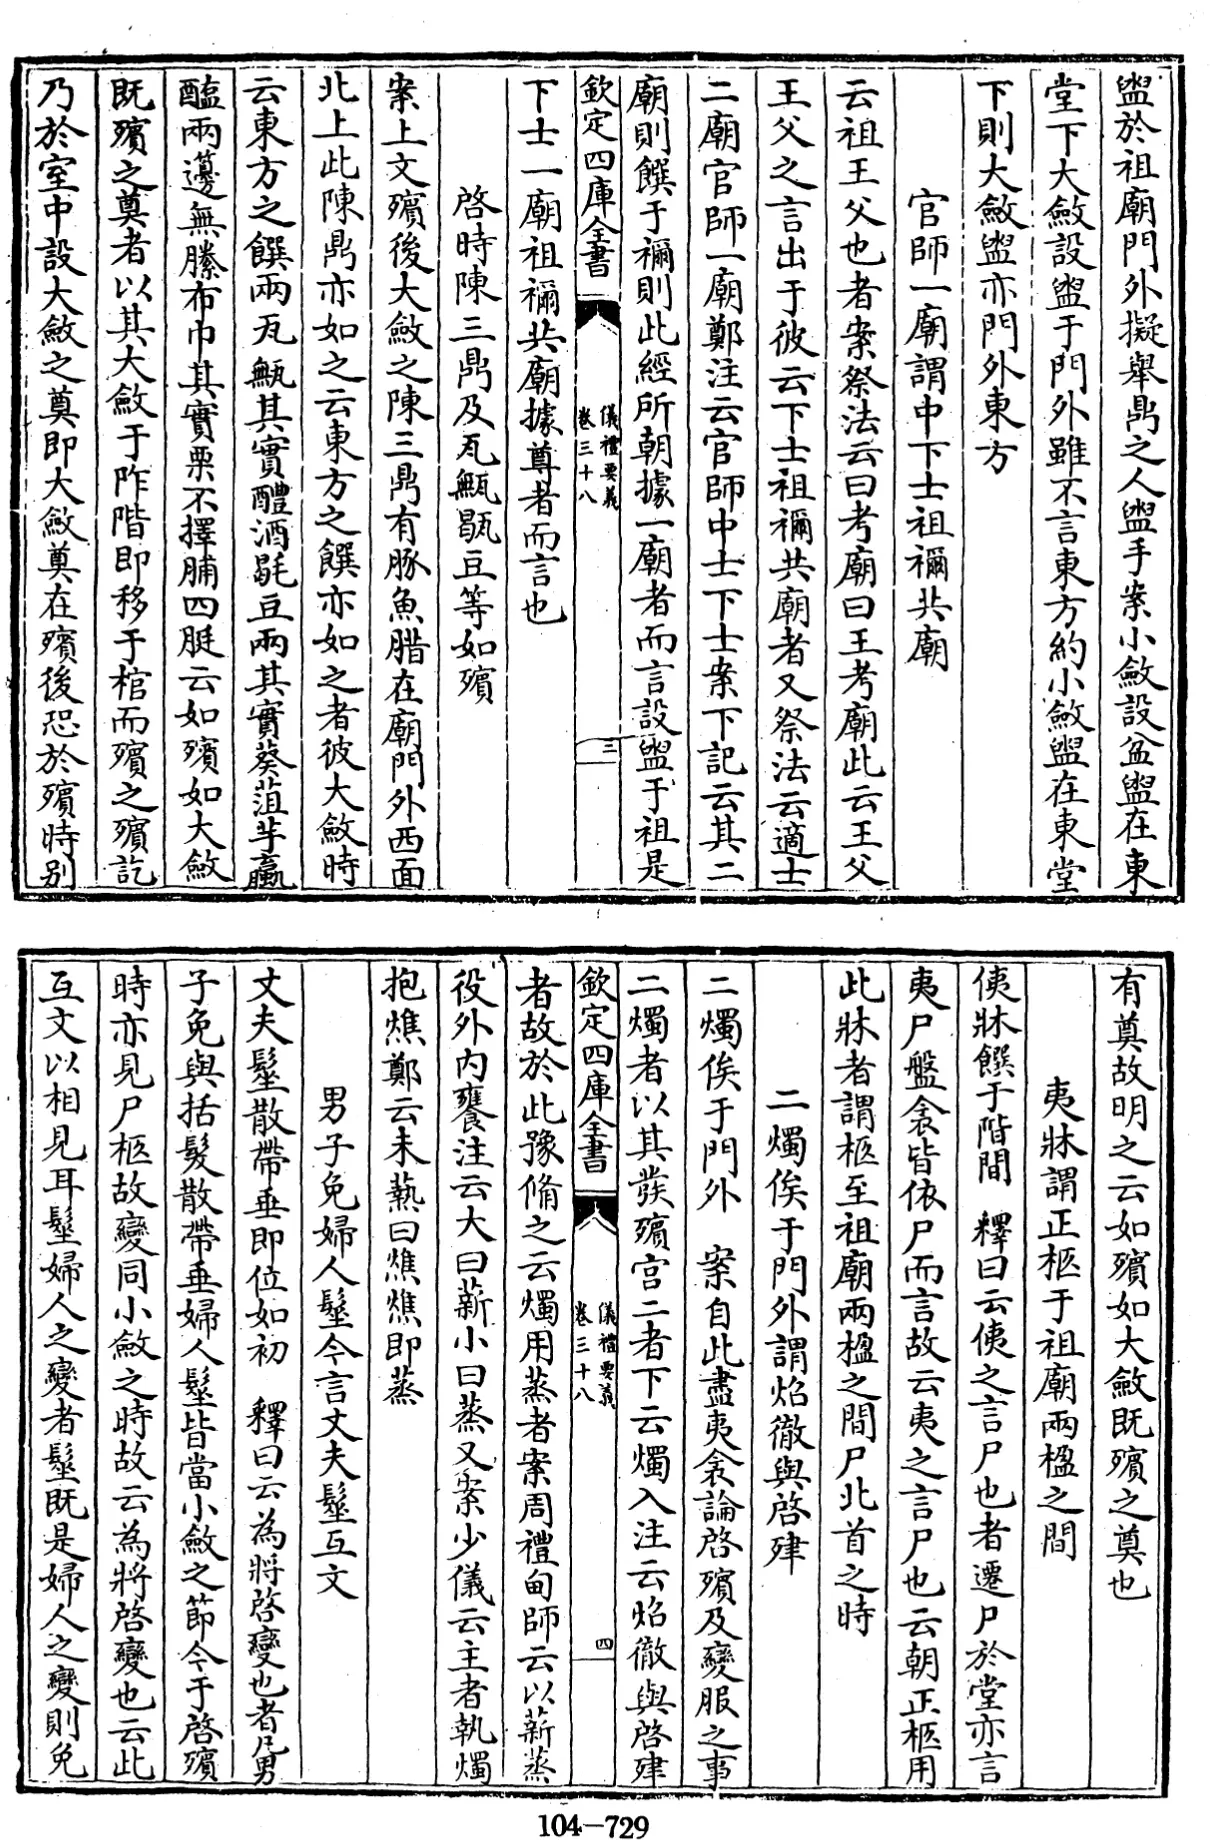 盥於祖廟門外擬舉鼎之人盥手案小斂設盆盥在東
堂下大斂設盥于門外雖不言東方約小斂盥在東堂
下則大斂盥亦門外東方
官師一廟謂中下士祖禰共廟
云祖王父也者案祭法云曰考廟曰王考廟此云王父
王父之言出于彼云下士祖禰共廟者又祭法云適士
二廟官師一廟鄭注云官師中士下士案下記云其二
廟則饌于禰則此經所朝據一廟者而言設盥于祖是
欽定四庫全書 儀禮要義 卷三十八 三
下士一廟祖禰共廟據尊者而言也
啓時陳三鼎及瓦甒毼豆等如殯
案上文殯後大斂之陳三鼎有豚魚腊在廟門外西面
北上此陳鼎亦如之云東方之饌亦如之者彼大斂時
云東方之饌兩瓦甒其實醴酒毼豆兩其實葵菹芋蠃
醢兩籩無縢布巾其實栗不擇脯四脡云如殯如大斂
既殯之奠者以其大斂于阼階即移于棺而殯之殯訖
乃於室中設大斂之奠即大斂奠在殯後恐於殯時别
有奠故明之云如殯如大斂既殯之奠也
夷牀謂正柩于祖廟兩楹之間
侇牀饌于階間 釋曰云侇之言尸也者遷尸於堂亦言
夷尸盤衾皆依尸而言故云夷之言尸也云朝正柩用
此牀者謂柩至祖廟兩楹之間尸北首之時
二燭俟于門外謂炤徹與啓肂
二燭俟于門外 案自此盡夷衾論啓殯及變服之事
二燭者以其發殯宫二者下云燭入注云炤徹與啓肂
欽定四庫全書 儀禮要義 卷三十八 四
者故於此豫備之云燭用蒸者案周禮甸師云以薪蒸
役外内饔注云大曰薪小曰蒸又案少儀云主者執燭
抱燋鄭云未爇曰燋燋即蒸
男子免婦人髽今言丈夫髽互文
丈夫髽散帶垂即位如初 釋曰云為將啓變也者凡男
子免與括髮散帶垂婦人髽皆當小斂之節今于啓殯
時亦見尸柩故變同小斂之時故云為將啓變也云此
互文以相見耳髽婦人之變者髽既是婦人之變則免
104-729